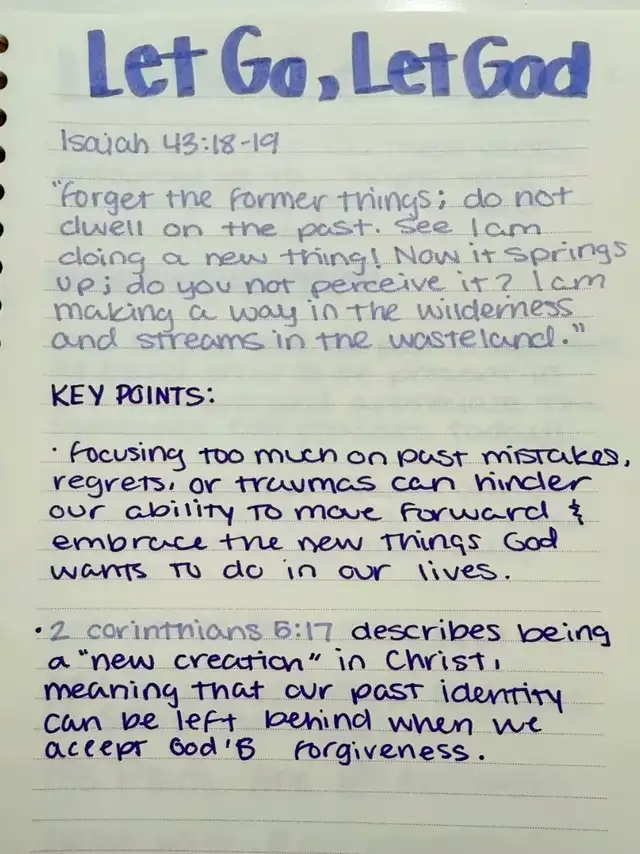 Let Go, Let God
Isaiah 43:18-19
"Forget the former things; do not
dwell on the past. See I am
doing a new thing! Now it springs
up; do you not perceive it? I am
making a way in the wilderness
and streams in the wasteland."
KEY POINTS:
· Focusing too much on past mistakes,
regrets, or traumas can hinder
our ability to move forward &
embrace the new things God
wants to do in our lives.
• 2 corinthians 5:17 describes being
a "new creation" in Christ,
meaning that our past identity
can be left behind when we
accept God's forgiveness.